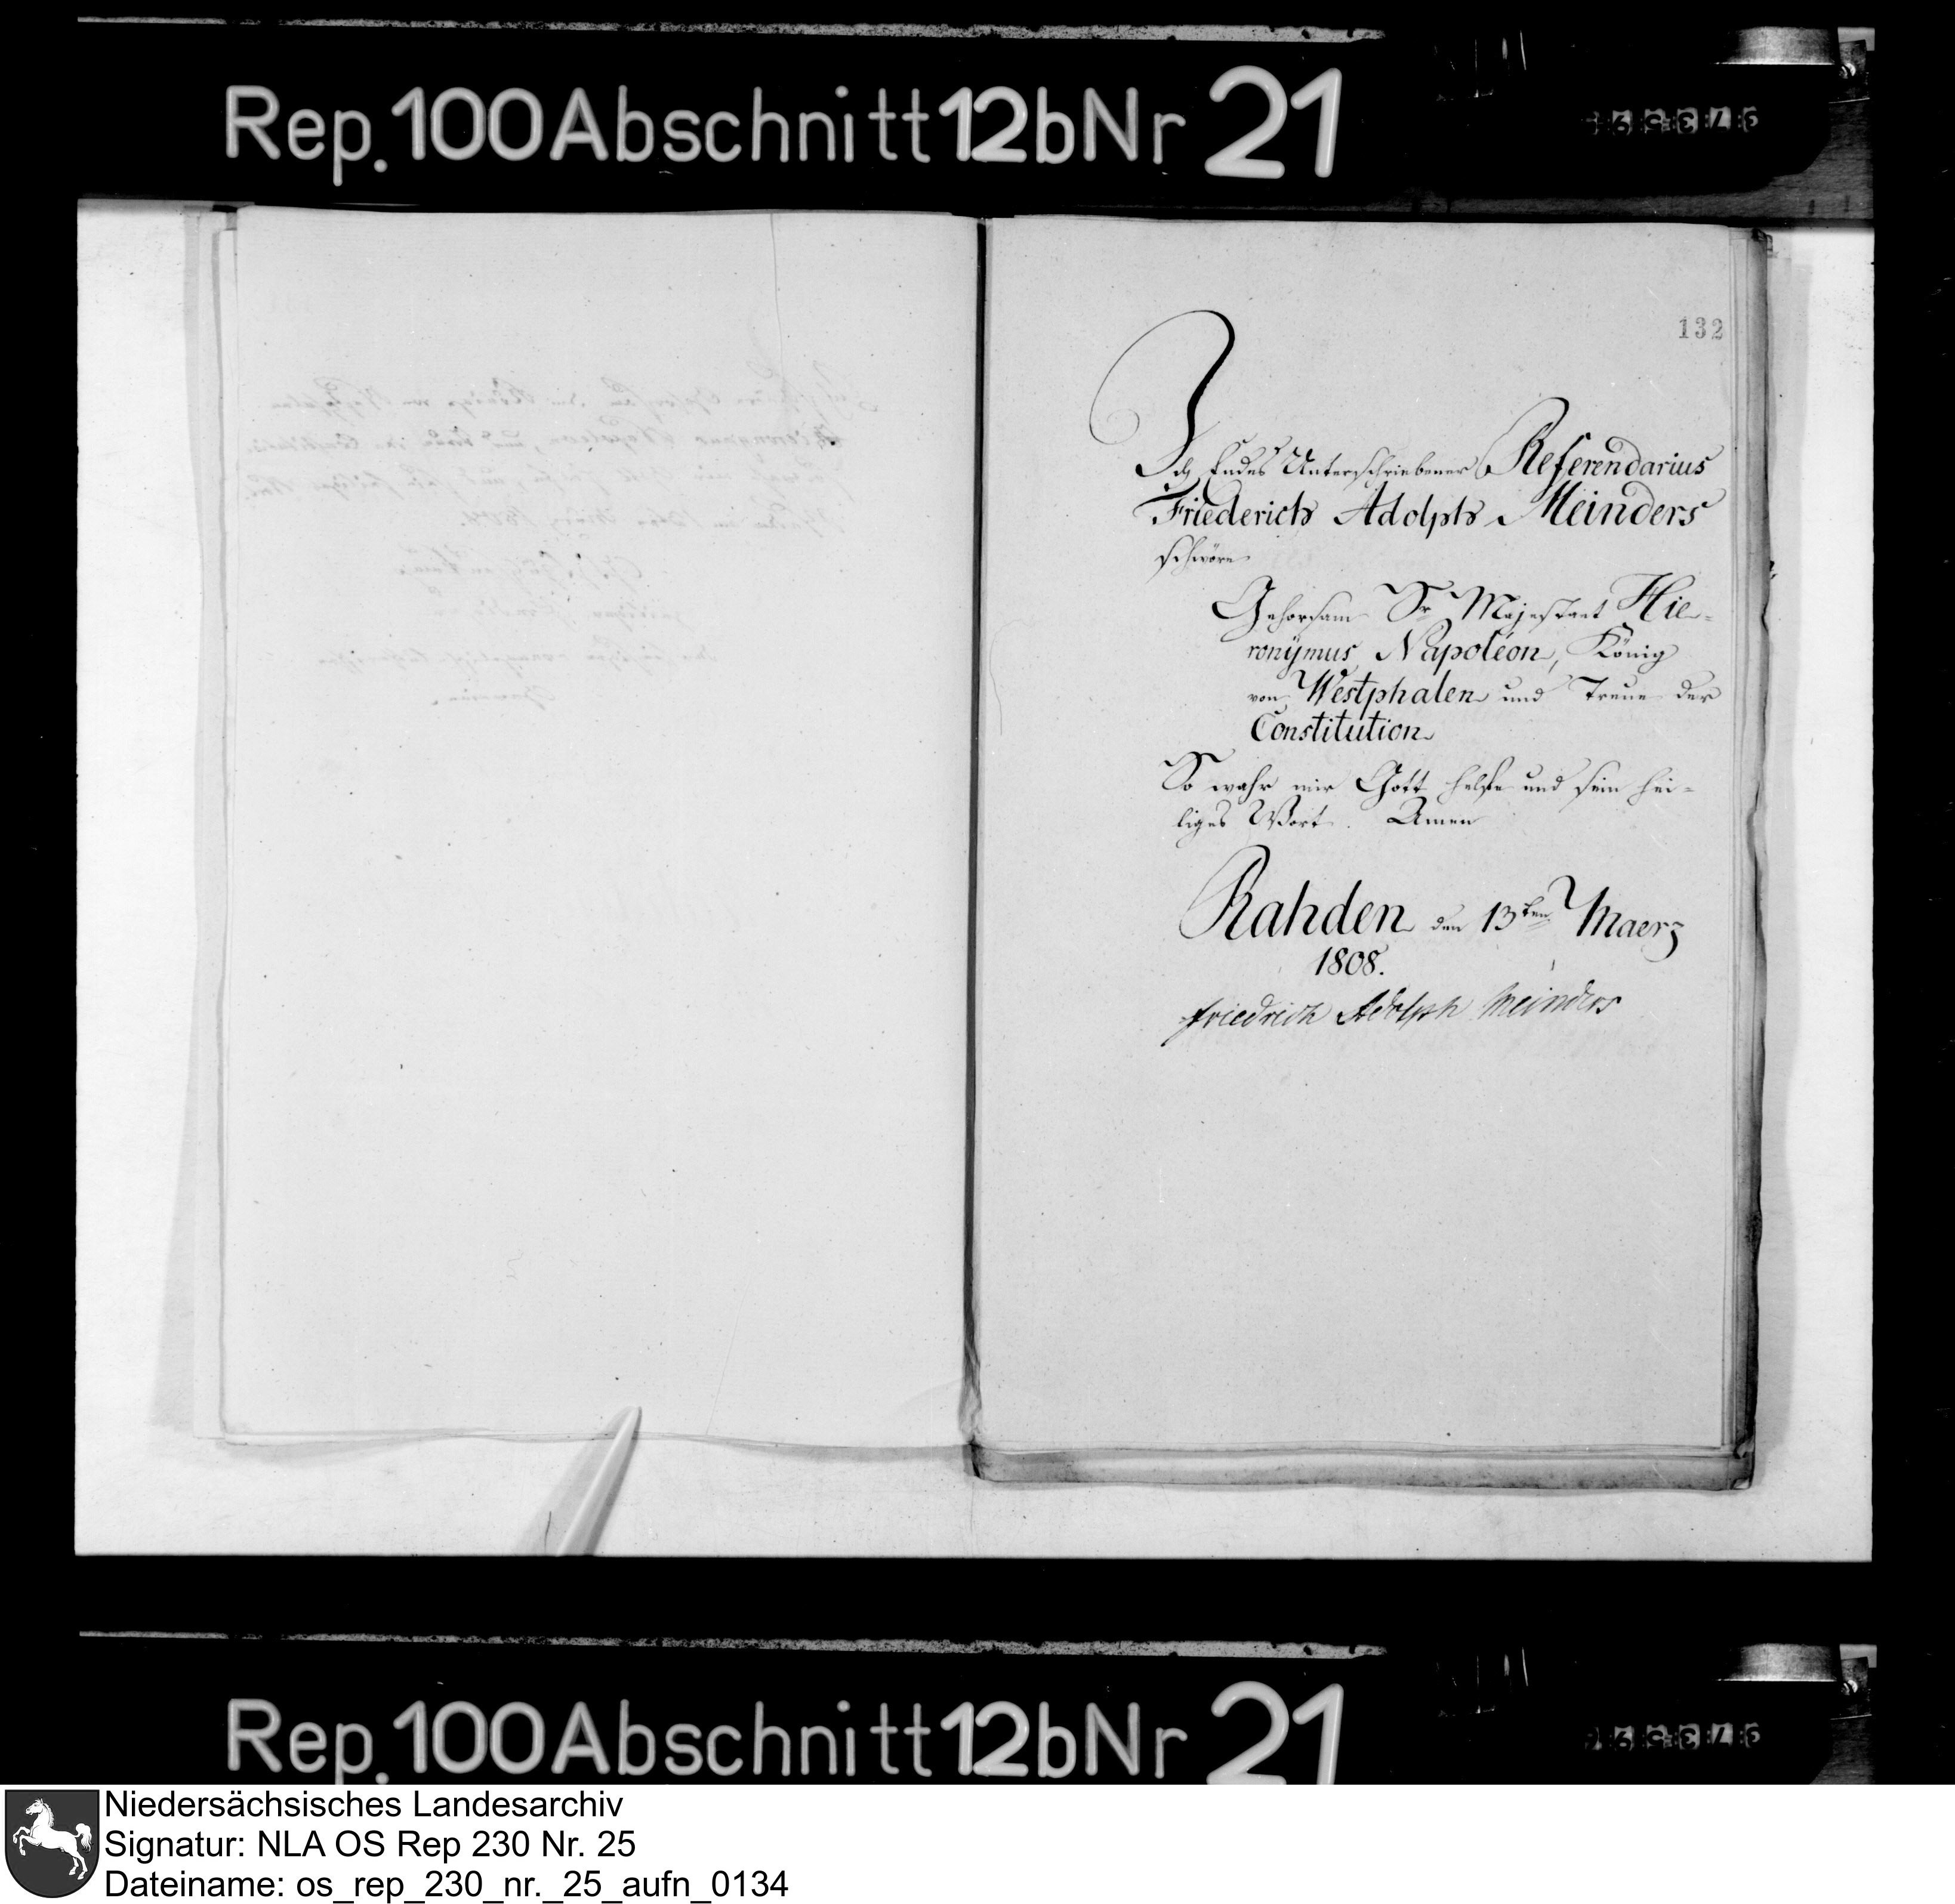 Rep.100Abschnitt12bNr 21
132
Ich Endes Unterschriebener Referendarius
Friederich Adolph Meinders
schwöre
Gehorsam Sr Majestaet Hie-
ronÿmus Napoléon, König
von Westphalen und Treue der
Constitution
So wahr mir Gott helfe und sein hei-
liges Wort. Amen
Rahden den 13ten Maerz
1808.
Friedrich Adolph Meinders
Rep.100Abschnitt12bNr 21
Niedersächsisches Landesarchiv
Signatur: NLA OS Rep 230 Nr. 25
Dateiname: os_rep_230_nr._25_aufn_0134